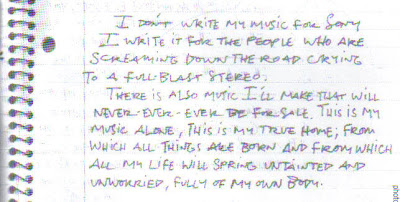 I DON'T WRITE MY MUSIC FOR SONY
I WRITE IT FOR THE PEOPLE WHO ARE
SCREAMING DOWN THE ROAD CRYING
TO A FULL-BLAST STEREO.
THERE IS ALSO MUSIC I'LL MAKE THAT WILL
NEVER-EVER-EVER BE FOR SALE. THIS IS MY
MUSIC ALONE, THIS IS MY TRUE HOME; FROM
WHICH ALL THINGS ARE BORN AND FROM WHICH
ALL MY LIFE WILL SPRING UNTAINTED AND
UNWORRIED, FULLY OF MY OWN BODY.
photo